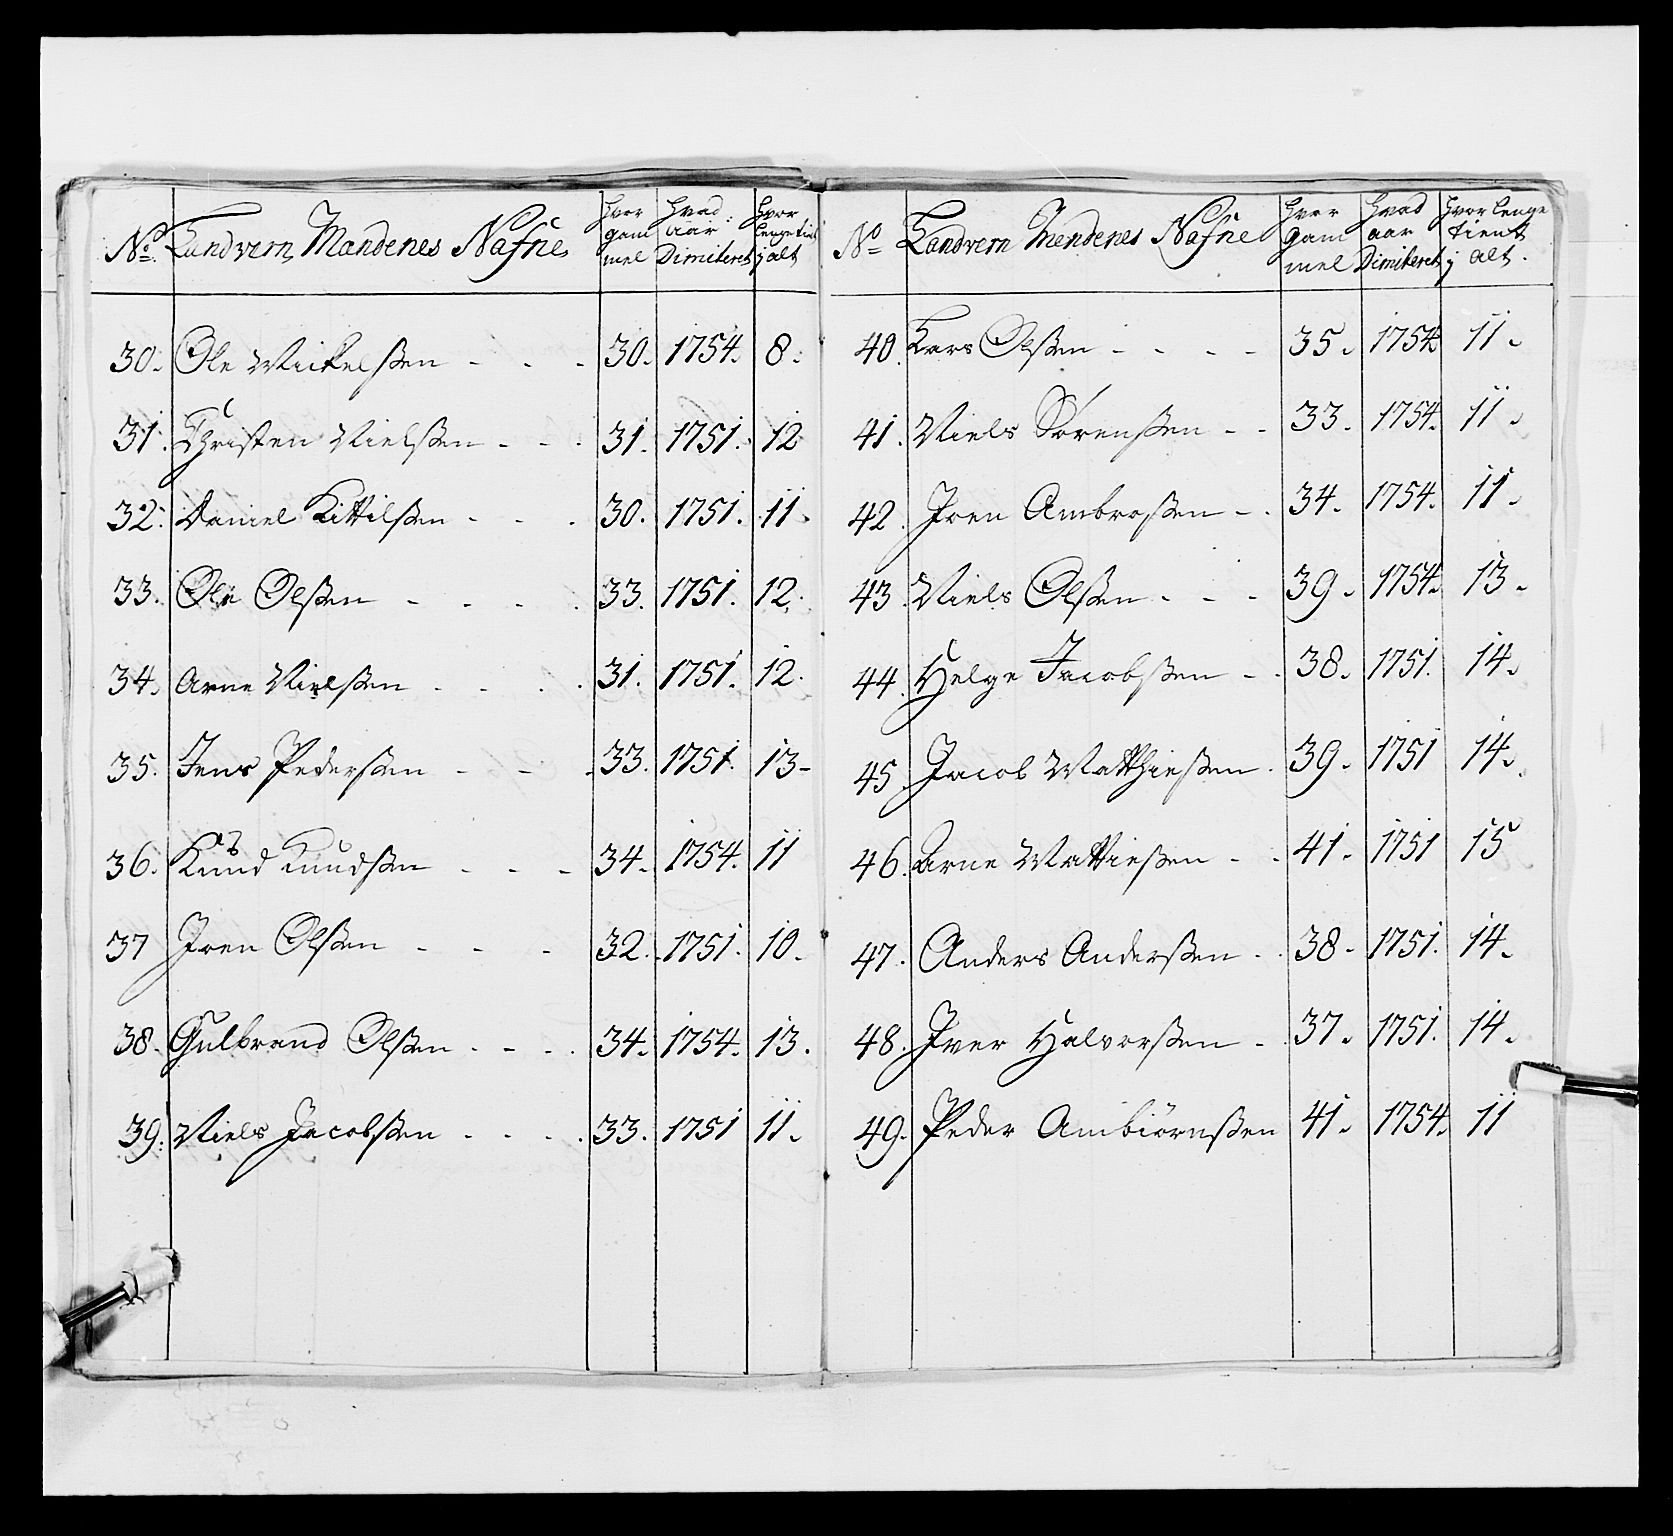 No. Landvern Mandenes Nafne Hvor gammel Hvad aar Dimiteret Hvor lenge tient j alt
30. Ole Mickelsßen - - - 30. 1754. 8.
31. Christen Nielsßen - - - 31. 1751. 12
32. Daniel Kittilsßen - - - 30. 1751. 11.
33. Ole Olsßen - - - - 33. 1751. 12.
34. Arne Nielsßen - - - - 31. 1751. 12.
35. Jens Pedersßen - - - 33. 1751. 13-
36. Knud Knudsßen - - - 34. 1754. 11
37 Joen Olsßen - - - 32. 1751. 10.
38. Gulbrand Olsßen - - - 34. 1754. 13.
39. Niels Jacobsßen - - - - 33. 1751 11.
No Landvern Mendenes Nafne Hvor gammel Hvad aar Dimiteret Hvor lenge tient j alt.
40. Lars Olsßen - - - - 35. 1754. 11.
41. Niels Sörensßen - - 33. 1754. 11.
42. Joen Ambrosßen - - 34. 1754. 11.
43. Niels Olsßen - - - 39. 1754. 13.
44. Helge Jacobsßen - - 38. 1751. 14.
45 Jacob Matthiesßen. 39. 1751 14.
46. Arne Mattiesßen - - 41. 1751 15
47. Anders Andersßen - - 38- 1751. 14.
48. Iver Halvorsßen - - 37. 1751. 14.
49. Peder Ambiörnsßen 41. 1754. 11